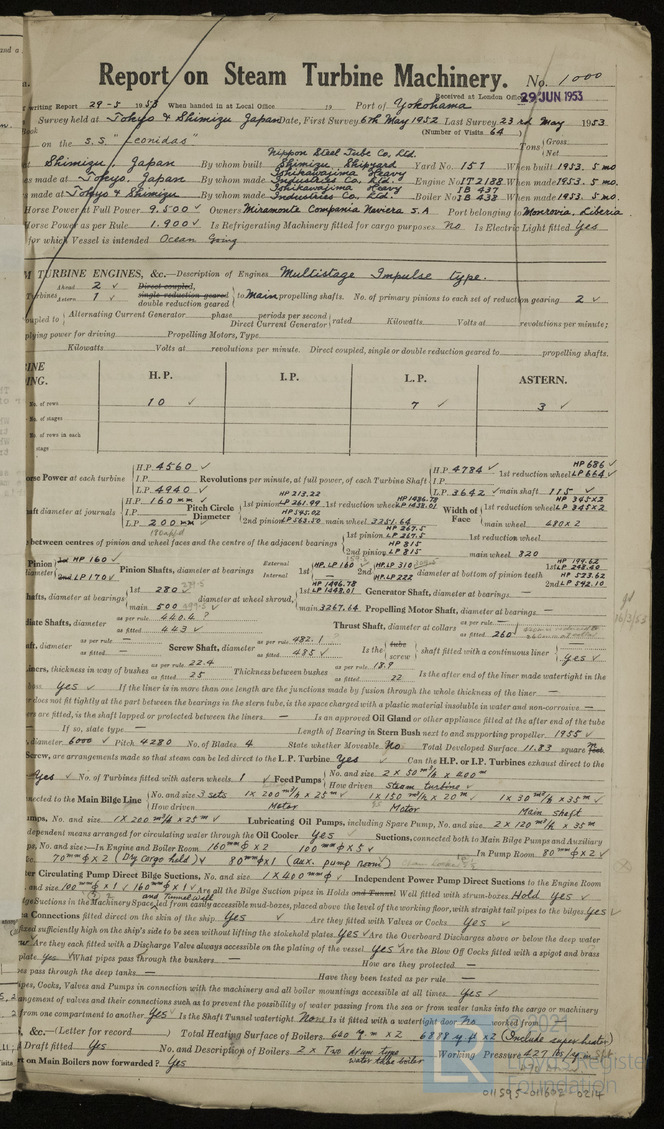 Report on Steam Turbine Machinery. No. 1000
Received at London Office 29 JUN 1953
writing Report 29-5 1953 When handed in at Local Office 19 Port of Yokohama
Survey held at Tokyo & Shimizu Japan Date, First Survey 6th May 1952 Last Survey 23rd May 1953
(Number of Visits 64)
on the S.S. "Leonidas" Tons Gross Net
at Shimizu, Japan By whom built Nippon Steel Tube Co, Ltd. Shimizu Shipyard Yard No. 151 When built 1953. 5 mo.
es made at Tokyo, Japan By whom made Ishikawajima Heavy Industries Co., Ltd. Engine No. IT2188 When made 1953. 5 mo.
s made at Tokyo & Shimizu By whom made Ishikawajima Heavy Industries Co., Ltd. Boiler No. IB 437 IB 438 When made 1953. 5 mo.
Horse Power at Full Power 9.500 Owners Miramonte Compania Naviera S.A Port belonging to Monrovia, Liberia
Horse Power as per Rule 1.900 Is Refrigerating Machinery fitted for cargo purposes No Is Electric Light fitted Yes
for which Vessel is intended Ocean Going
M TURBINE ENGINES, &c.—Description of Engines Multistage Impulse type.
Turbines Ahead 2 Direct coupled, single reduction geared double reduction geared to Main propelling shafts. No. of primary pinions to each set of reduction gearing 2
Astern 1
oupled to Alternating Current Generator phase periods per second Direct Current Generator rated Kilowatts Volts at revolutions per minute;
plying power for driving Propelling Motors, Type
Kilowatts Volts at revolutions per minute. Direct coupled, single or double reduction geared to propelling shafts.
H.P. I.P. L.P. ASTERN.
No. of rows 10 7 3
No. of stages
No. of rows in each
stage
orse Power at each turbine H.P. 4560 I.P. L.P. 4940 Revolutions per minute, at full power, of each Turbine Shaft H.P. 4784 I.P. L.P. 3642 1st reduction wheel HP 686 LP 664 main shaft 115
aft diameter at journals H.P. 160 mm I.P. L.P. 200 mm Pitch Circle Diameter 1st pinion HP 213.22 LP 261.99 1st reduction wheel HP 1486.78 LP 1438.01 Width of Face 1st reduction wheel HP 345x2 LP 345x2
2nd pinion HP 545.02 LP 563.50 main wheel 3251.64 main wheel 480x2
between centres of pinion and wheel faces and the centre of the adjacent bearings 1st pinion HP 267.5 LP 267.5 2nd pinion HP 815 LP 815 1st reduction wheel main wheel 820
Pinion diameter 1st HP 160 2nd LP 170 Pinion Shafts, diameter at bearings External Internal 1st HP, LP 160 2nd HP 310 HP, LP 222 diameter at bottom of pinion teeth 1st HP 199.62 LP 248.40 2nd HP 523.62 LP 542.10
hafts, diameter at bearings 1st 280 main 500 diameter at wheel shroud, 1st HP 1496.78 LP 1448.01 main 3267.64 Generator Shaft, diameter at bearings — Propelling Motor Shaft, diameter at bearings —
diate Shafts, diameter as per rule 440.4 as fitted 443 Thrust Shaft, diameter at collars as per rule — as fitted 260
aft, diameter as per rule — as fitted — Screw Shaft, diameter as per rule 482.1 as fitted 485 Is the tube screw shaft fitted with a continuous liner Yes
iners, thickness in way of bushes as per rule 22.4 as fitted 25 Thickness between bushes as per rule 18.9 as fitted 22 Is the after end of the liner made watertight in the
boss Yes If the liner is in more than one length are the junctions made by fusion through the whole thickness of the liner —
r does not fit tightly at the part between the bearings in the stern tube, is the space charged with a plastic material insoluble in water and non-corrosive —
ers are fitted, is the shaft lapped or protected between the liners — Is an approved Oil Gland or other appliance fitted at the after end of the tube
If so, state type — Length of Bearing in Stern Bush next to and supporting propeller 1955
diameter 6000 Pitch 4280 No. of Blades 4 State whether Moveable No Total Developed Surface 11.83 square
Screw, are arrangements made so that steam can be led direct to the L.P. Turbine Yes Can the H.P. or I.P. Turbines exhaust direct to the
Yes No. of Turbines fitted with astern wheels 1 Feed Pumps No. and size 2 x 50 m³/h x 400 m How driven Steam turbine
nected to the Main Bilge Line No. and size 3 sets 1 x 200 m³/h x 25 m 1 x 150 m³/h x 20 m 1 x 30 m³/h x 35 m How driven Motor Motor Main shaft
umps, No. and size 1 x 200 m³/h x 25 m Lubricating Oil Pumps, including Spare Pump, No. and size 2 x 120 m³/h x 35 m
dependent means arranged for circulating water through the Oil Cooler Yes Suctions, connected both to Main Bilge Pumps and Auxiliary
ps, No. and size:—In Engine and Boiler Room 160 mm φ x 2 100 mm φ x 5 In Pump Room 80 mm φ x 2
70 mm φ x 2 (Dry cargo hold) 80 mm φ x 1 (aux. pump room)
er Circulating Pump Direct Bilge Suctions, No. and size 1 x 400 mm φ Independent Power Pump Direct Suctions to the Engine Room
nd size 100 mm φ x 1, 160 mm φ x 1 Are all the Bilge Suction pipes in Holds and Tunnel Well fitted with strum-boxes Hold Yes
and Tunnel Well
lge Suctions in the Machinery Space led from easily accessible mud-boxes, placed above the level of the working floor, with straight tail pipes to the bilges Yes
a Connections fitted direct on the skin of the ship Yes Are they fitted with Valves or Cocks Yes
fixed sufficiently high on the ship's side to be seen without lifting the stokehold plates Yes Are the Overboard Discharges above or below the deep water
Are they each fitted with a Discharge Valve always accessible on the plating of the vessel Yes Are the Blow Off Cocks fitted with a spigot and brass
plate Yes What pipes pass through the bunkers — How are they protected —
es pass through the deep tanks — Have they been tested as per rule —
ipes, Cocks, Valves and Pumps in connection with the machinery and all boiler mountings accessible at all times Yes
angement of valves and their connections such as to prevent the possibility of water passing from the sea or from water tanks into the cargo or machinery
from one compartment to another Yes Is the Shaft Tunnel watertight None Is it fitted with a watertight door No worked from
S, &c.—(Letter for record ) Total Heating Surface of Boilers 6878 sq ft x 2 (Include superheater)
Draft fitted Yes No. and Description of Boilers 2 x Two drum type water tube boiler Working Pressure 427 lbs/
rt on Main Boilers now forwarded? Yes
© 2021
Lloyd's Register
Foundation
011595-011602-0214